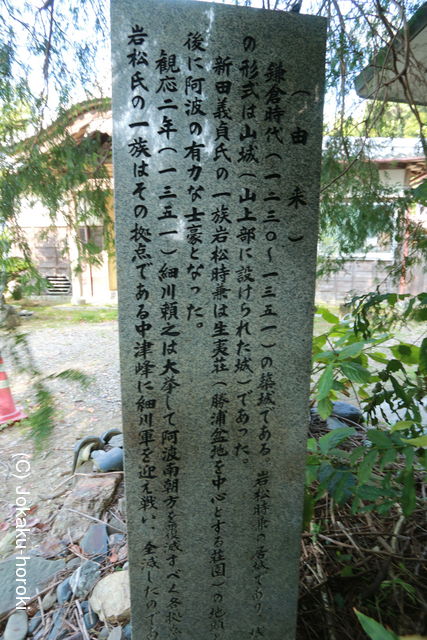 （由来）
鎌倉時代（一二三〇～一三五一）の築城である。岩松時兼の居城であり、城
の形式は山城（山上部に設けられた城）であった。
新田義貞氏の一族岩松時兼は生夷荘（勝浦盆地を中心とする荘園）の地頭
後に阿波の有力な士豪となった。
観応二年（一三五一）細川頼之は大挙して阿波南朝方を覆滅すべく各拠
岩松氏の一族はその拠点である中津峰に細川軍を迎え戦い、全滅したのであ
(C) Jokaku-horo